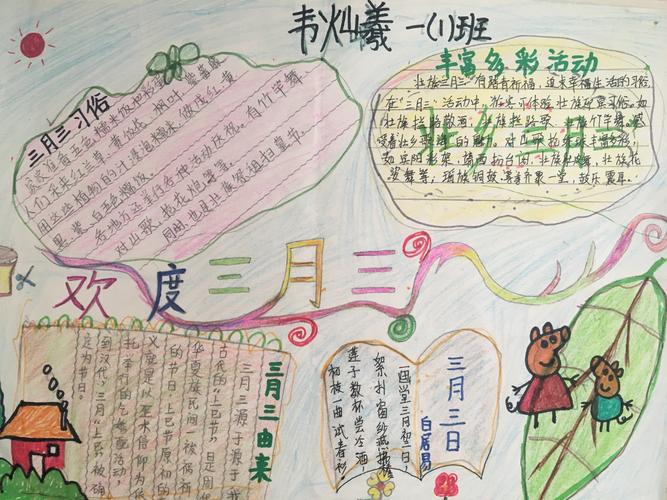 韦灿曦 一(1)班
三月三习俗
家家准备五色糯米饭和彩蛋
人们采来红兰草、黄饭花、枫叶、紫蕃藤
用这些植物的汁浸泡糯米,做成红黄
黑、紫、白五色糯饭。
各地方还举行各种活动庆祝。有竹竿舞
对山歌、抢花炮等等。
同时也是壮族祭祖扫墓节。
丰富多彩活动
壮乡三月三
壮族三月三"有祈福,追求幸福生活的习俗
在"三月三"活动中,游客可体验壮族迎宾习俗,如
壮族拦路敬酒、壮族拦路歌、壮族竹竿舞,感
受着壮乡歌海的魅力。对山歌抛绣球丰富多彩,
如岳阳彩架,靖西扮台阁,壮族舞,壮族花
婆舞等,瑶族铜鼓演奏齐聚一堂,鼓乐震耳。
欢度三月三
三月三由来
三月三源于源于我
古代的"上巳节",日是周代
华夏族民间,被
的节日,上巳节原初的
义应是以巫术信仰为依
托,举行的乞婚配活动,
到汉代,三月"上巳"被确
定为节日。
三月三日
白居易
画堂三月初三日,
絮扑窗纱燕拂檐
莲子数杯尝冷酒,
柘枝一曲试春衫。